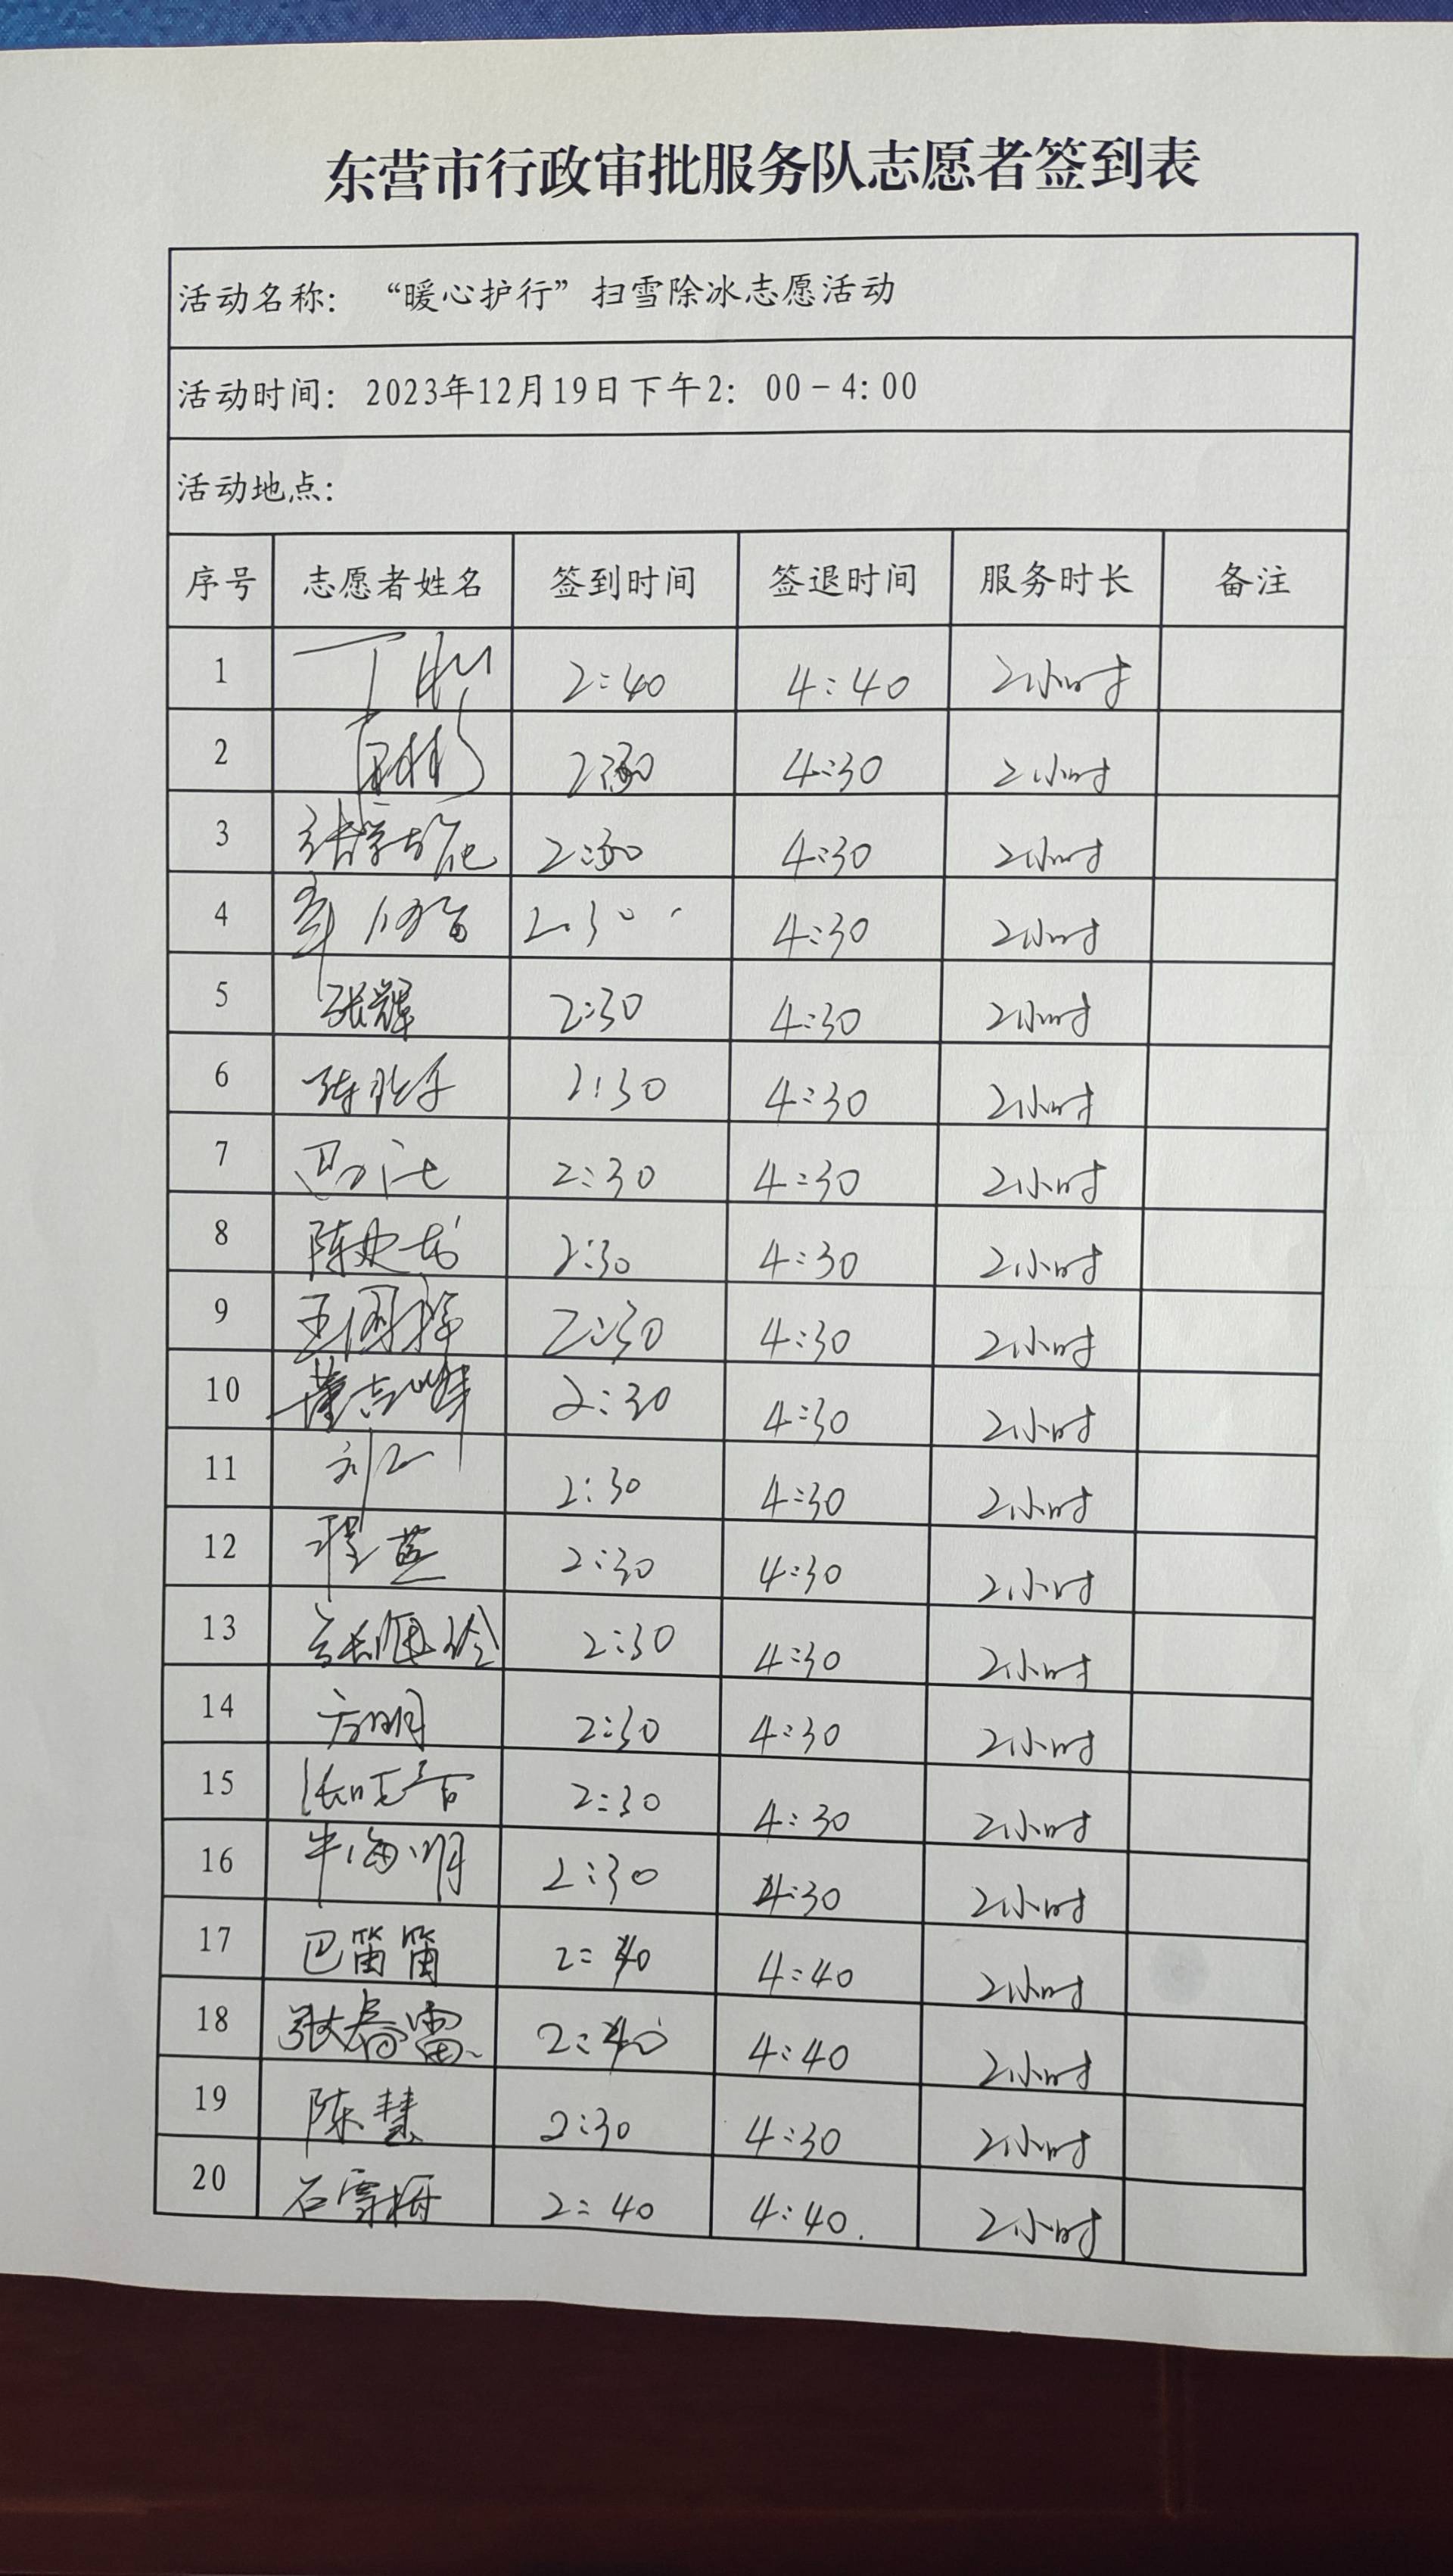 东营市行政审批服务队志愿者签到表
活动名称：“暖心护行”扫雪除冰志愿活动
活动时间：2023年12月19日下午2：00－4：00
活动地点：
序号 志愿者姓名 签到时间 签退时间 服务时长 备注
1 丁 2:40 4:40 2小时
2 2:30 4:30 2小时
3 张 2:30 4:30 2小时
4 2:30 4:30 2小时
5 张辉 2:30 4:30 2小时
6 2:30 4:30 2小时
7 2:30 4:30 2小时
8 陈 2:30 4:30 2小时
9 王国 2:30 4:30 2小时
10 董志峰 2:30 4:30 2小时
11 刘 2:30 4:30 2小时
12 程燕 2:30 4:30 2小时
13 2:30 4:30 2小时
14 方明 2:30 4:30 2小时
15 张 2:30 4:30 2小时
16 牛海明 2:30 4:30 2小时
17 巴笛笛 2:40 4:40 2小时
18 张春雷 2:40 4:40 2小时
19 陈慧 2:30 4:30 2小时
20 石雪梅 2:40 4:40. 2小时